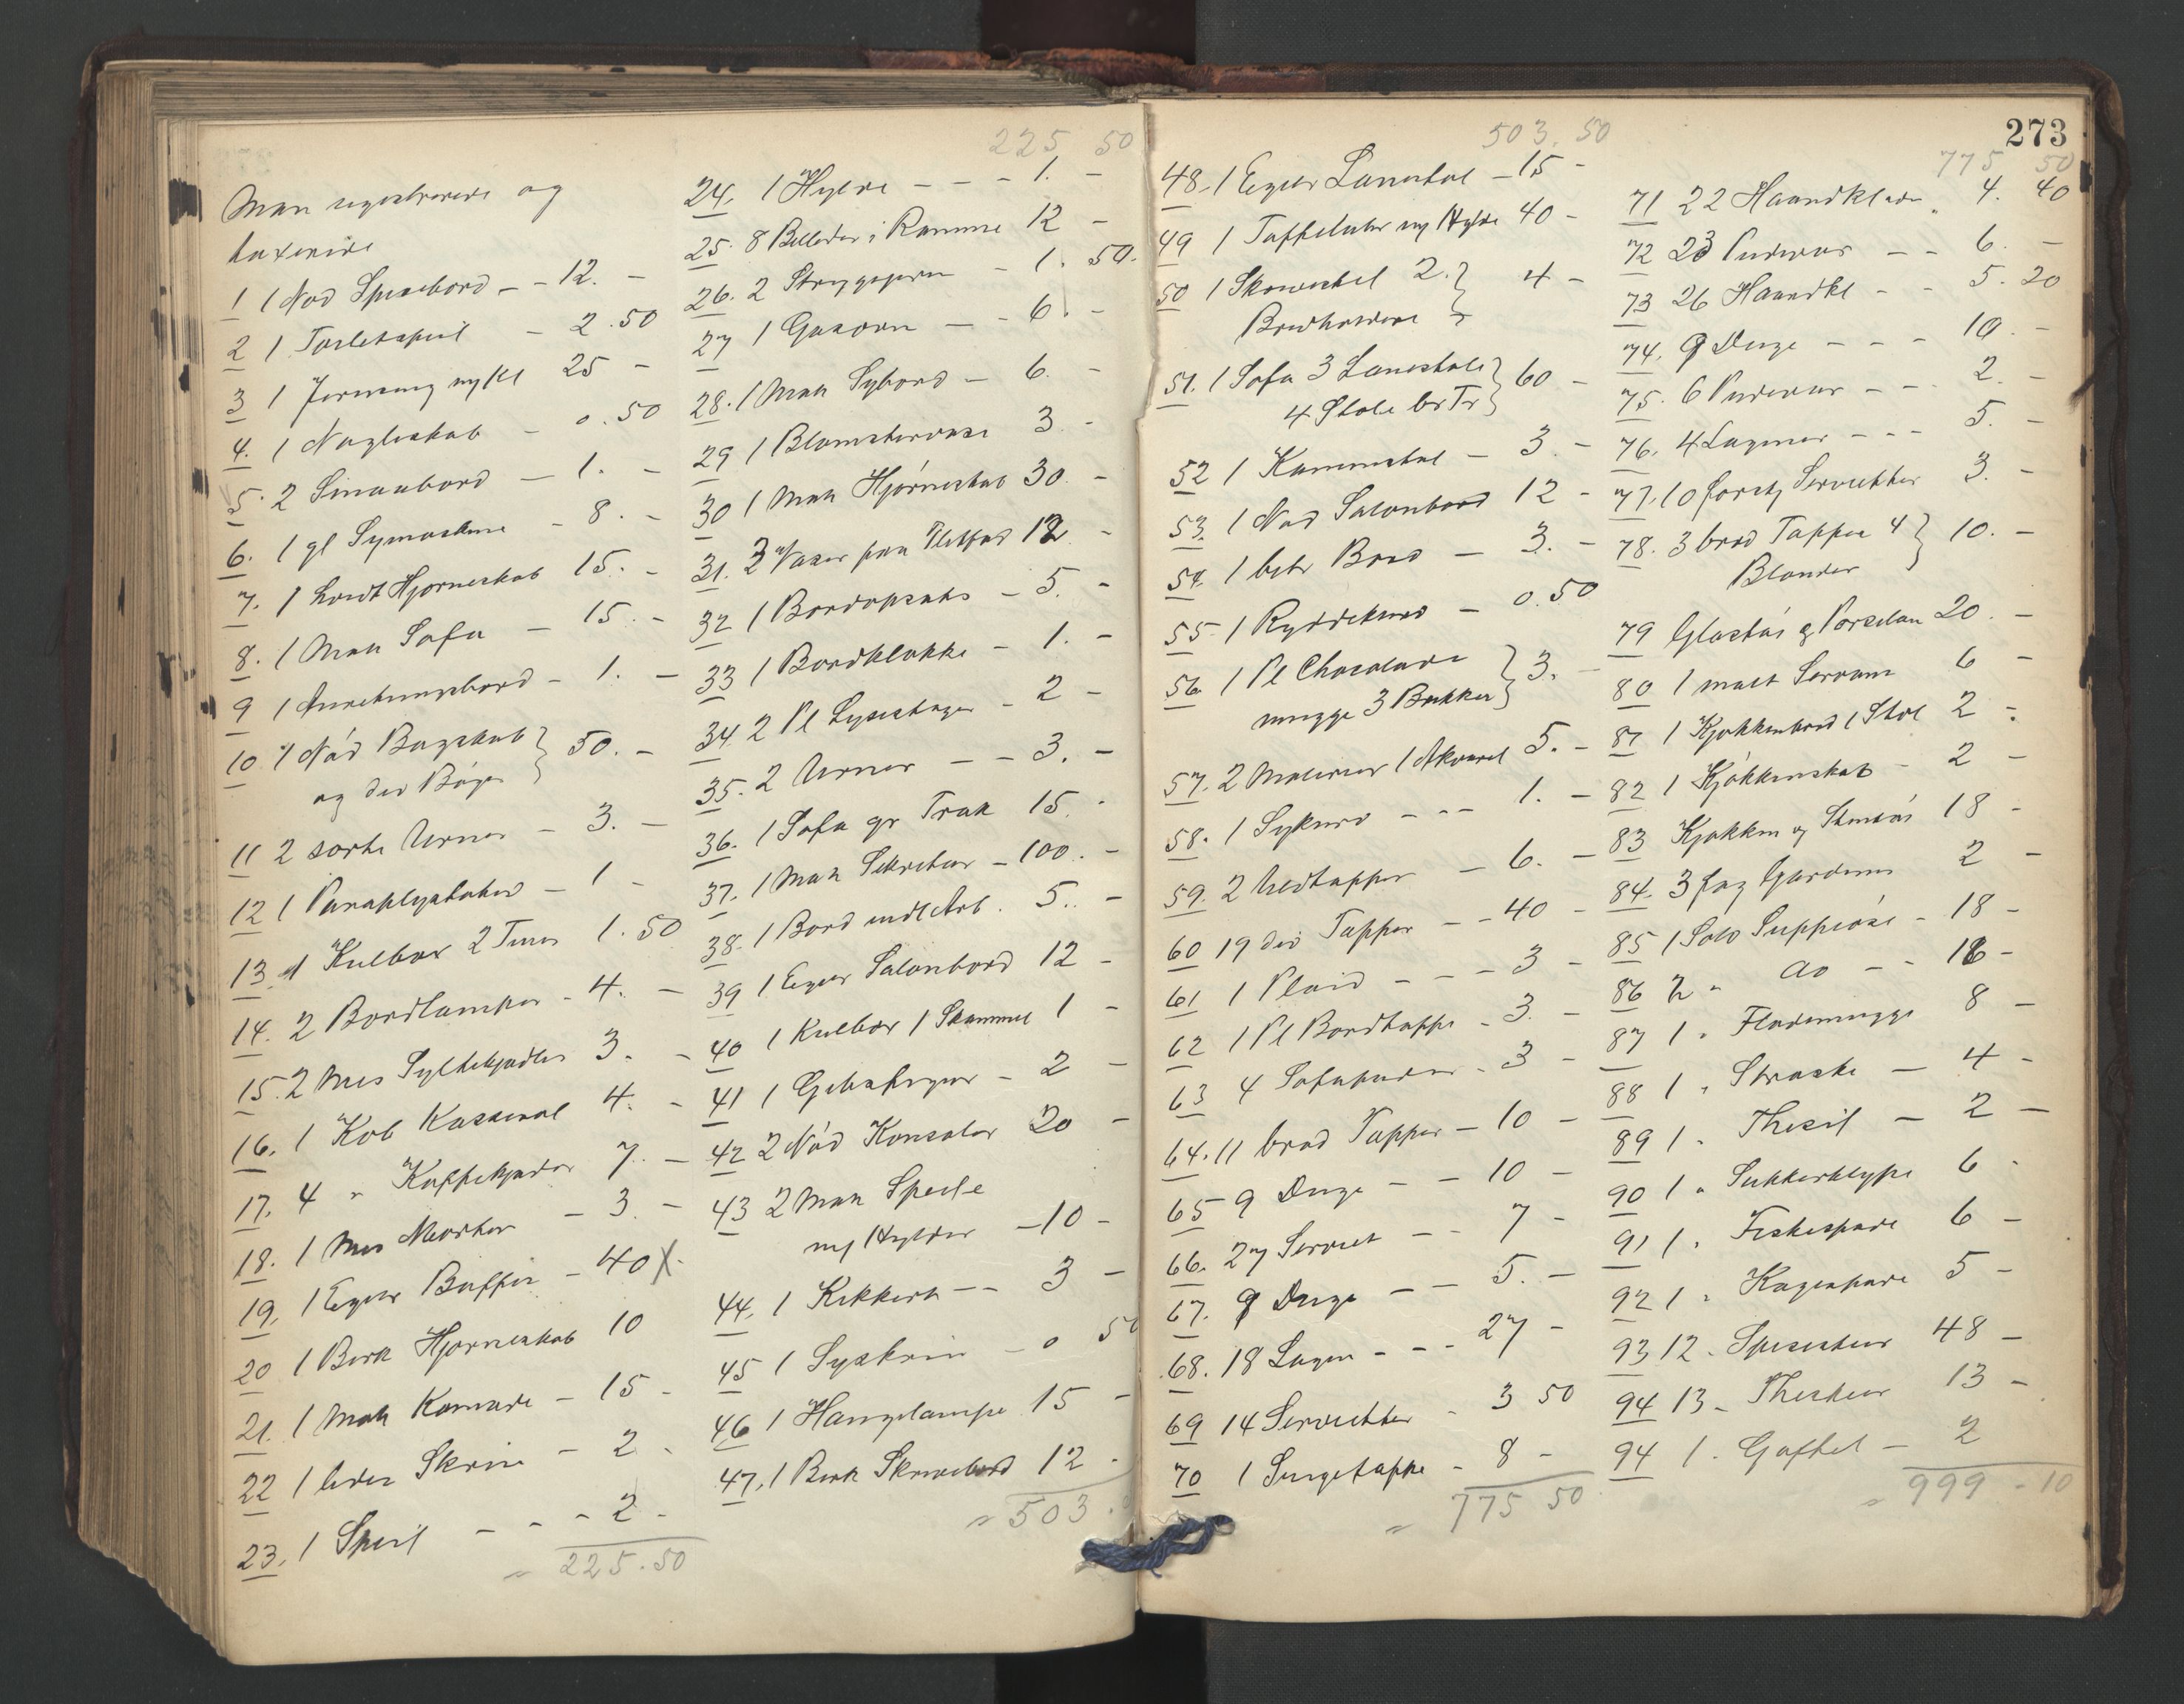 225 50
Man registrerede og
taxerede
1 1 Nød Spisebord - - 12. -
2 1 Toiletspeil - 2.50
3 1 Jernseng m/Kl 25 -
4. 1 Nøgleskab - 0.50
5. 2 Smaabord - 1. -
6. 1 gl Symaskine - 8. -
7. 1 hvidt Hjørneskab 15. -
8. 1 Mah Sofa - 15. -
9 1 Anretningsbord - 1. -
10 1 Nød Bogskab } 50. -
og div Bøger
11 2 sorte Urner - 3. -
12 1 Paraplystativ - 1 -
13. 1 Kulbox 2 Tiner 1.50
14. 2 Bordlamper - 4. -
15. 2 Mes Syltekjedler 3. -
16. 1 Kob Kasserol 4. -
17. 4 " Kaffekjedler 7. -
18. 1 Mes Morter - 3. -
19. 1 Egetr Buffet - 40 X -
20 1 Birk Hjørneskab 10
21. 1 Mah Komode - 15 -
22 1 lidet Skrin - 2. -
23. 1 Speil - - - 2. -
= 225.50
24. 1 Hylde - - - 1. -
25. 8 Billeder i Ramme 12 -
26. 2 Strygejern - 1.50.
27 1 Gasovn - - 6. -
28. 1 Mah Sybord - 6. -
29 1 Blomstervase 3 -
30 1 Mah Hjørneskab 30. -
31. 3 Vaser paa 12. -
32 1 Bordopsats - 5. -
33 1 Bordklokke - 1. -
34. 2 Pl Lysestager - 2 -
35. 2 Urner - - 3. -
36. 1 Sofa gr Træk 15. -
37. 1 Mah Sekretær - 100. -
38. 1 Bord indl Arb. 5. -
39 1 Egetr Salonbord 12 -
40 1 Kulbox 1 Skammel 1 -
41 1 Gibsfigur - 2 -
42 2 Nød Konsoler 20 -
43 2 Mah Speile
m/ Hylder - 10 -
44. 1 Kikkert - - 3 -
45 1 Syskrin - 0 50
46 1 Hængelampe 15 -
47. 1 Birk Skrivebord 12 -
= 503.
503.50
273
48. 1 Egetr Lænestol - 15 -
49 1 Taffelur m/ Hylde 40 -
50 1 Skrivestel 2 } 4 -
Brevholdere
51. 1 Sofa 3 Lænestole } 60 -
4 Stole br Tr
52 1 Kurvestol - 3. -
53. 1 Nød Salonbord 12 -
54. 1 beh Bord - 3. -
55. 1 Ryddekurv - 0.50
56. 1 Pl Chocolade } 3. -
mugge 3 Bakker
57. 2 Malerier 1 Akvarel 5. -
58. 1 Sykurv - - - 1. -
59. 2 Uldtæpper - 6. -
60 19 div Tæpper - - 40 -
61 1 Plaid - - - 3 -
62 1 Pl Bordtæppe - 3. -
63 4 Sofapuder - 3 -
64. 11 brod Tæpper - 10 -
65 9 Duge - - 10 -
66. 27 Serviet - - 7 -
67. 9 Duge - - 5. -
68. 18 Lagen - - - 27 -
69 14 Servietter - 3 50
70 1 Sengetæppe - 8 -
= 775 50
775 50
71 22 Haandklæder " 4. 40
72 23 Pudevar - - 6. -
73 26 Haandkl - - 5.20
74. 9 Duge - - - 10. -
75. 6 Pudevar - - 2. -
76. 4 Lagener - - - 5. -
77. 10 forskj Servietter 3. -
78. 3 brod Tæpper 4 } 10. -
Blonder
79 Glastøi & Porselæn 20. -
80 1 malt Servant 6 -
81 1 Kjøkkenbord 1 Stol 2 -
82 1 Kjøkkenskab - 2 -
83 Kjøkken og Stentøi 18 -
84. 3 fag Gardiner 2 -
85 1 Sølv Suppeøse - 18 -
86 2 " do - - 16 -
87 1 " Flødemugge 8 -
88 1 " Strøske - 4 -
89 1 " Thesil - 2 -
90 1 " Sukkerklype 6 -
91 1 " Fiskespade 6 -
92 1 " Kagespade 5 -
93 12 " Spiseskeer 48 -
94 13 " Theskeer 13 -
94 1 " Gaffel - 2
= 999 - 10